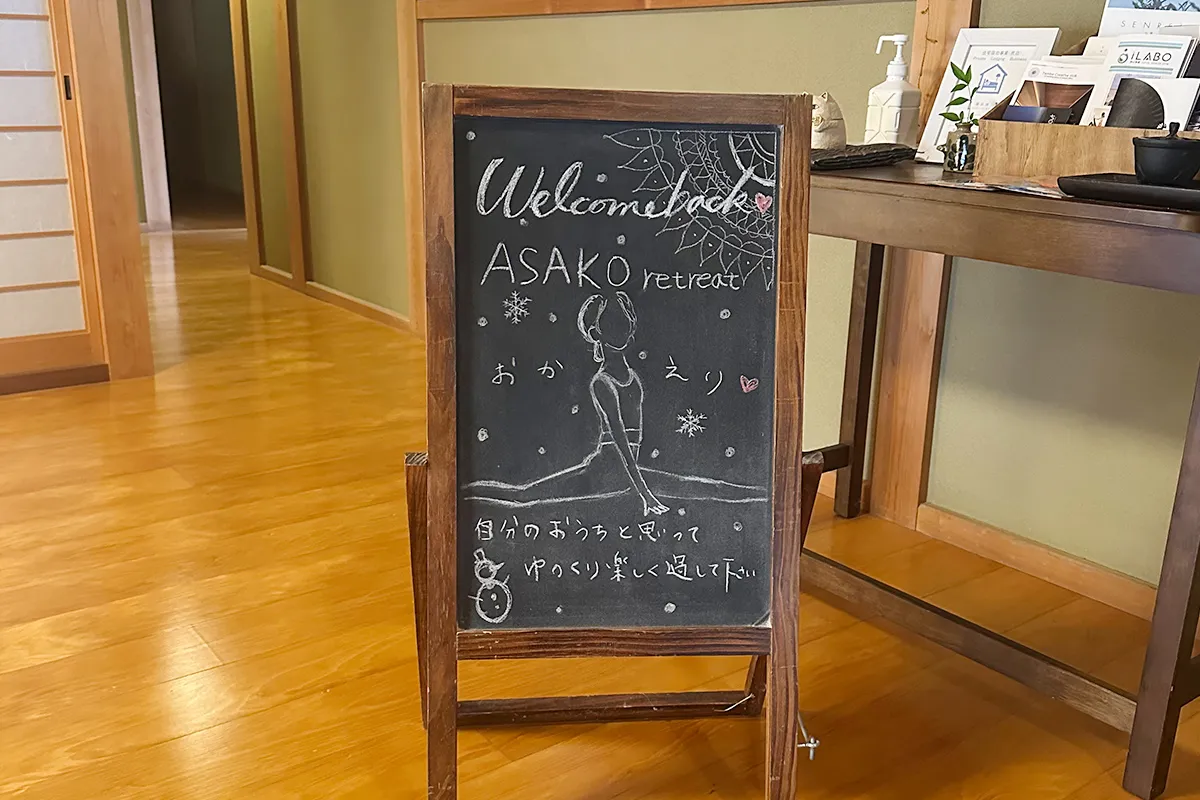 Welcome back
ASAKO retreat
おかえり
自分のおうちと思って
ゆっくり楽しく過して下さい
SENRE
iLABO